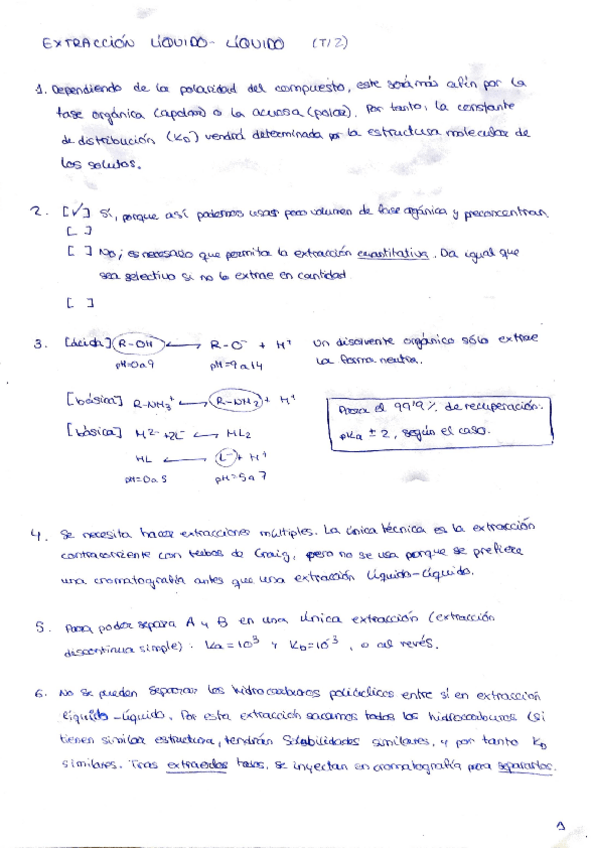 EXTRACCIÓN LÍQUIDO-LÍQUIDO (T12)
1. Dependiendo de la polaridad del compuesto, este será más afín por la
fase orgánica (apolar) o la acuosa (polar). Por tanto, la constante
de distribución (KD) vendrá determinada por la estructura molecular de
los solutos.
2. [✓] Sí, porque así podemos usar poco volumen de fase orgánica y preconcentran.
[ ]
[ ] No, es necesario que permita la extracción cuantitativa. Da igual que
sea selectivo si no lo extrae en cantidad.
[ ]
3. [ácida] R-OH ⟷ R-O⁻ + H⁺ Un disolvente orgánico sólo extrae
pH=0a9 pH=9a14 la forma neutra.
[básica] R-NH₃⁺ ⟷ R-NH₂ + H⁺
Para el 99'9% de recuperación:
[básica] M²⁻ + 2L⁻ ⟷ ML₂
pKa ± 2, según el caso.
HL ⟷ L⁻ + H⁺
pH=0a5 pH=5a7
4. Se necesita hacer extracciones múltiples. La única técnica es la extracción
contracorriente con tubos de Craig, pero no se usa porque se prefiere
una cromatografía antes que una extracción líquido-líquido.
5. Para poder separa A y B en una única extracción (extracción
discontinua simple): Ka=10³ y KD=10⁻³, o al revés.
6. No se pueden separar los hidrocarburos policíclicos entre sí en extracción
líquido-líquido. Por esta extracción sacamos todos los hidrocarburos (si
tienen similar estructura, tendrán solubilidades similares, y por tanto KD
similares. Tras extraerlos todos, se inyectan en cromatografía para separarlos.
1